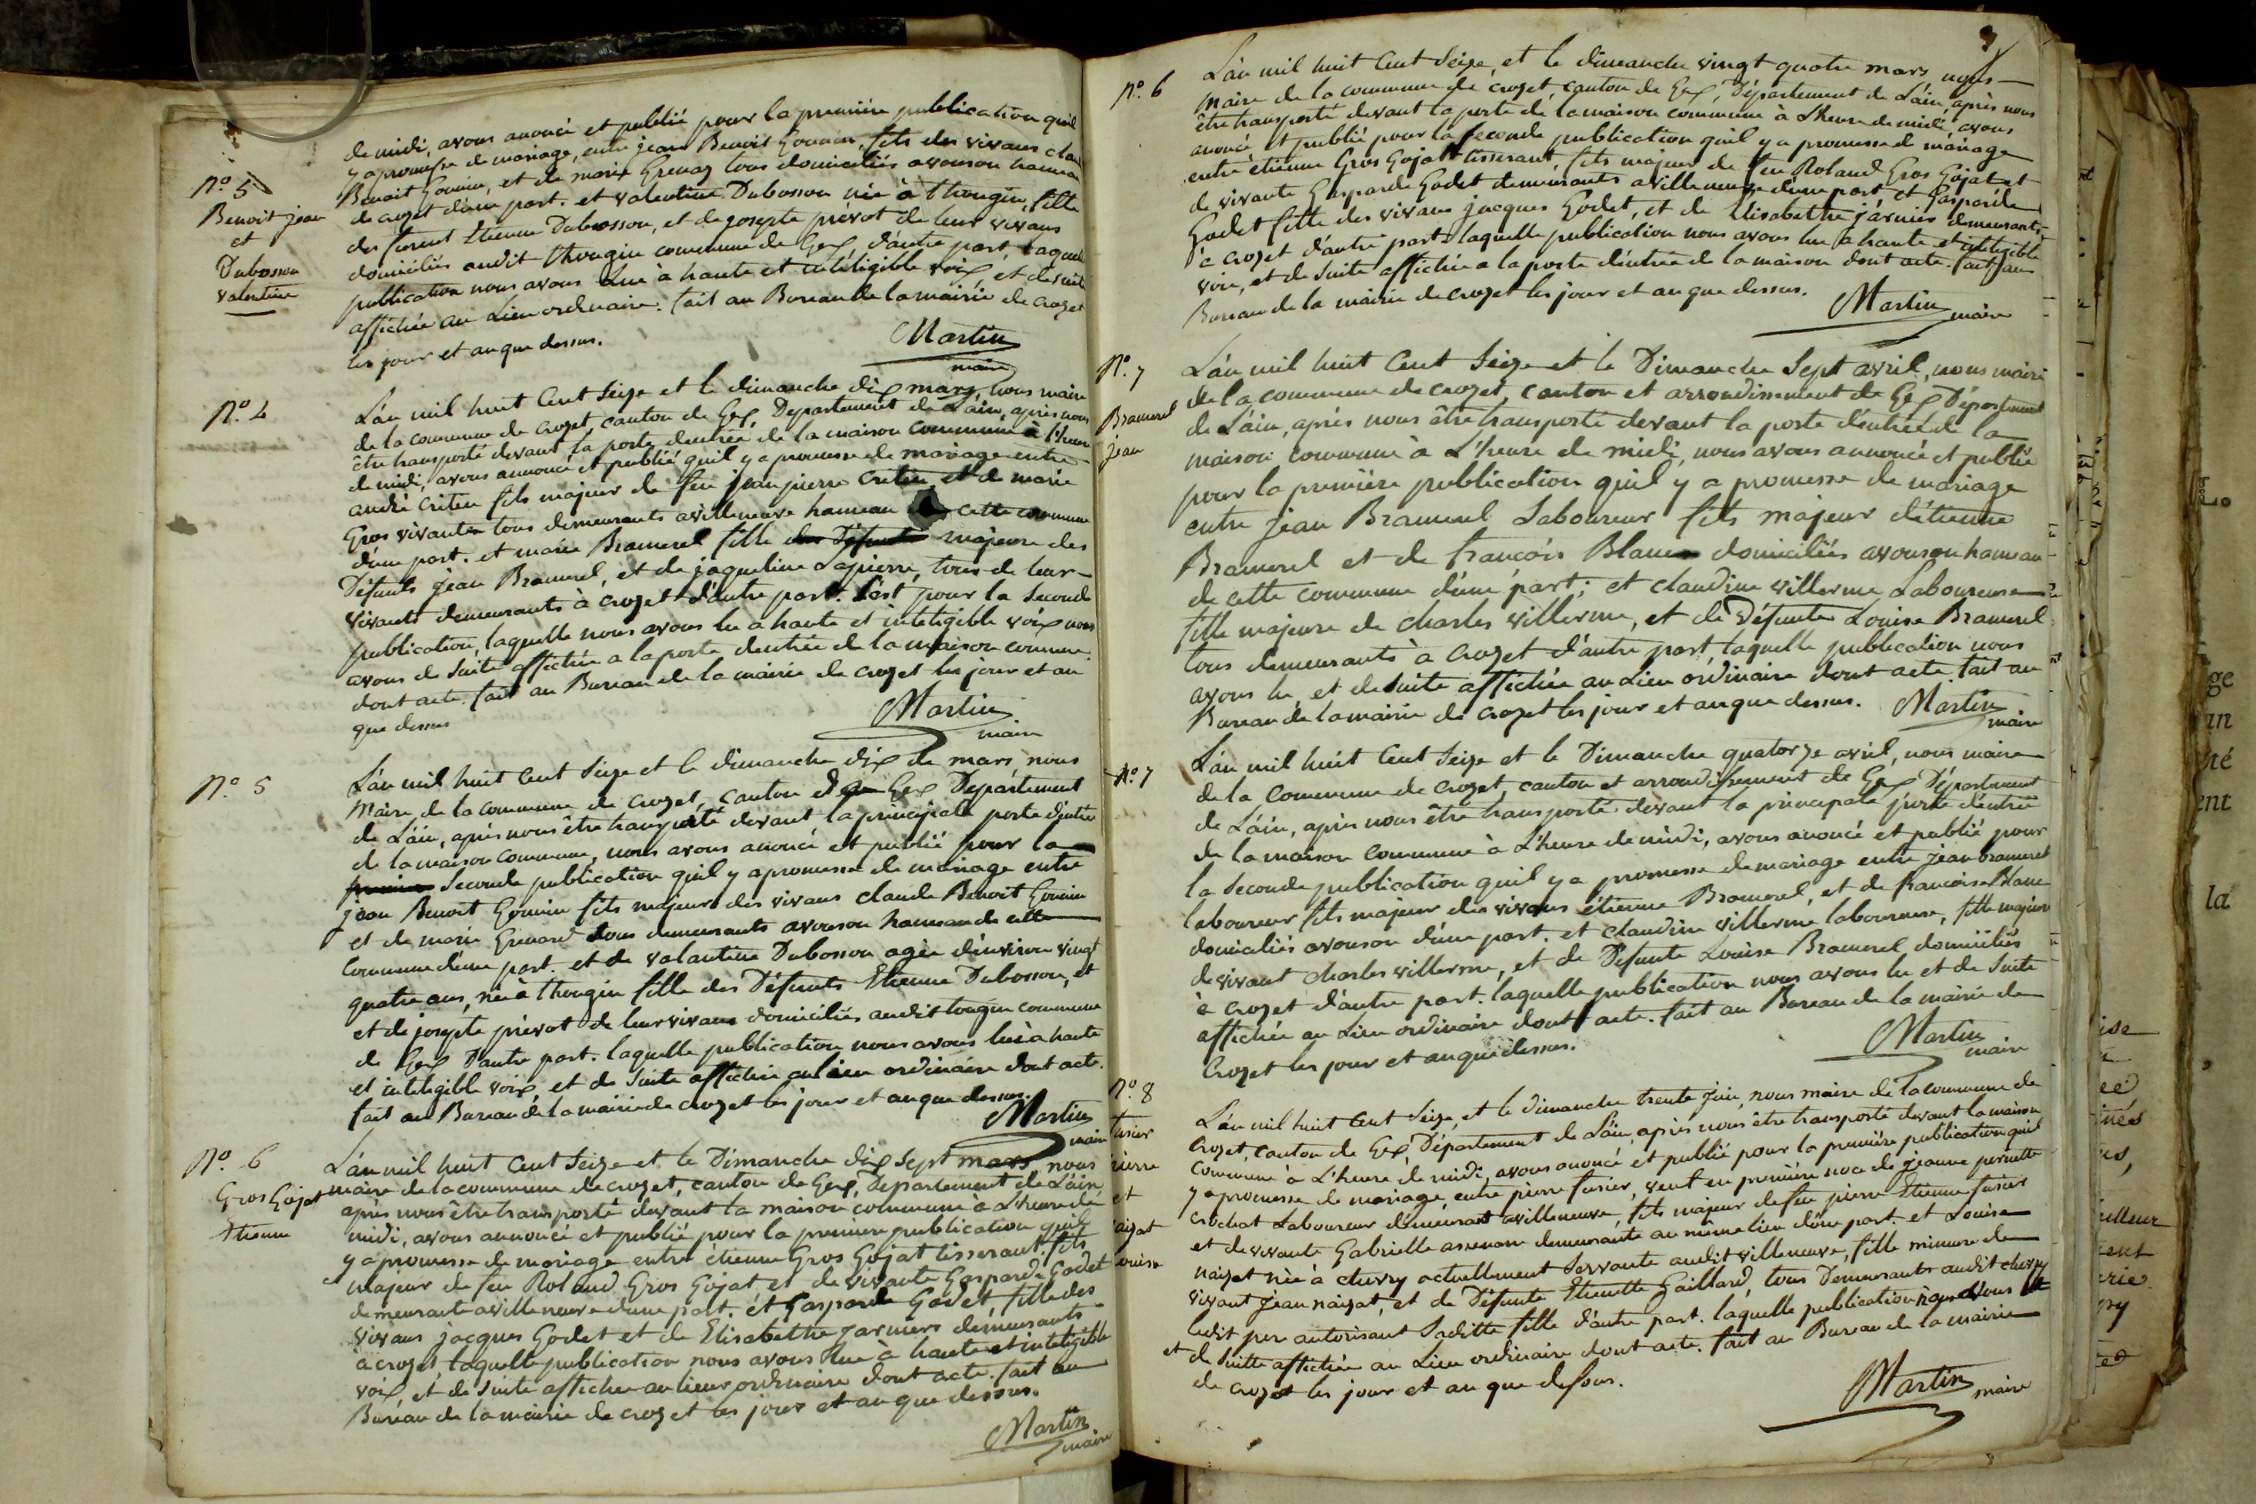 de midi, avons anoncé et publié pour la premiere publication quil
y a promesse de mariage, entre jean Benoit Gounin, fils des vivans
N.o 5
Benoit Gounin, et de marie Grenaz tous domiciliés avouson hameau
Benoit jean
et
Dubosson
valentine
de crozet d'une part. et valentine Dubosson née à thougin, fille
des furent Etienne Dubosson, et de josepte prévot de leur vivans
domiciliés audit thougin commune de Gex, d'autre part, laquelle
publication nous avons lue à haute et inteligible voix et de suite
affichée au Lieu ordinaire. fait au Bureau de la mairie de crozet
les jour et an que dessus.
Martin
maire
N.o 4
L'an mil huit Cent Seize et le dimanche dix mars, nous maire
de la commune de crozet, canton de Gex, Departement de L'ain, après nous
être transporté devant la porte d'entrée de la maison commune à l'heure
de midi, avons annoncé et publié quil y a promesse de mariage entre
andré critin fils majeur de feu jean pierre critin, et de marie
Gros vivante tous demeurants avilleneuve hameau de cette commune
d'une part. et marie Bramerel fille des Défunts majeure des
Défunts jean Bramerel, et de jaqueline Lapierre, tous de leur
vivants demeurants à crozet d'autre part. C'est pour la seconde
publication, laquelle nous avons lu a haute et inteligible voix nous
avons de suite affichée a la porte d'entrée de la maison commune
dont acte. fait au Bureau de la mairie de crozet les jour et an
que dessus
Martin
maire
N.o 5
L'an mil huit Cent Seize et le dimanche dix de mars, nous
Maire de la commune de crozet, canton de Gex Département
de L'ain, après nous être transporté devant la principale porte d'entrée
de la maison commune, nous avons anoncé et publié pour la
premiere Seconde publication quil y a promesse de mariage entre
jean Benoit Gounin fils majeur des vivans claude Benoit Gounin
et de marie Grenard tous demeurants avouson hameau de cette
Commune d'une part. et de valantine Dubosson agée d'environ vingt
quatre ans, née à thougin fille des Défunts Etienne Dubosson, et
et de josepte prévot de leur vivans domiciliés audit tougin commune
de Gex d'autre part. laquelle publication nous avons lue à haute
et inteligible voix et de suite affichée au lieu ordinaire dont acte.
fait au Bureau de la mairie de crozet les jour et an que dessus.
Martin
maire
N.o 6
Gros Gojat
Etienne
L'an mil huit Cent Seize et le Dimanche dix Sept mars nous
maire de la commune de crozet, canton de Gex, Departement de L'ain,
après nous être transporté devant la maison commune à L'heure de
midi, avons annoncé et publié pour la premiere publication quil
y a promesse de mariage entre étienne Gros Gojat tisserant, fils
majeur de feu Roland Gros Gojat et de vivante Gasparde Godet
demeurante avilleneuve d'une part. et Gasparde Godet, fille des
vivans jacques Godet et de Elisabethe jarniers demeurants
à crozet, laquelle publication nous avons lue à haute et inteligible
voix, et de suite affichée au lieux ordinaire dont acte. fait au
Bureau de la mairie de crozet les jour et an que dessus.
Martin
maire
N.o 6
L'an mil huit Cent Seize, et le dimanche vingt quatre mars, nous
Maire de la commune de crozet, canton de Gex, Département de L'ain, après nous
être transporté devant la porte de la maison commune à L'heure de midi, avons
anoncé et publié pour la seconde publication quil y a promesse de mariage
entre étienne Gros Gojat tisserant fils majeur de feu Roland Gros Gojat et
de vivante Gasparde Godet demeurants avilleneuve d'une part et Gasparde
Godet fille des vivans jacques Godet, et de Elisabethe jarniers demeurants
à crozet d'autre part. laquelle publication nous avons lue a haute et inteligible
voix, et de suite affichée a la porte d'entrée de la maison dont acte. fait au
Bureau de la mairie de crozet les jour et an que dessus.
Martin
maire
N.o 7
Bramerel
jean
L'an mil huit Cent Seize et le Dimanche Sept avril, nous maire
de la commune de crozet, canton et arrondissement de Gex Département
de L'ain, après nous être transporté devant la porte d'entrée de la
maison commune à L'heure de midi, nous avons annoncé et publié
pour la première publication quil y a promesse de mariage
entre jean Bramerel Laboureur fils majeur d'étienne
Bramerel et de francois Blanc domiciliés avouson hameau
de cette commune d'une part; et claudine villerme Laboureuse
fille majeure de charles villerme, et de Défunte Louise Bramerel
tous demeurants à crozet d'autre part, laquelle publication nous
avons lu, et de suite affichée au Lieu ordinaire dont acte. fait au
Bureau de la mairie de crozet les jour et an que dessus.
Martin
maire
N.o 7
L'an mil huit Cent Seize et le Dimanche quatorze avril, nous maire
de la Commune de crozet, canton et arrondissement de Gex Département
de L'ain, après nous être transporté devant la principale porte d'entrée
de la maison commune à L'heure de midi, avons anoncé et publié pour
la seconde publication quil y a promesse de mariage entre jean bramerel
laboureur, fils majeur des vivans étienne Bramerel, et de francoise Blanc
domiciliés avouson d'une part. et claudine villerme laboureuse, fille majeure
de vivant charles villerme, et de Défunte Louise Bramerel domiciliés
à crozet d'autre part. laquelle publication nous avons lu et de suite
affichée au Lieu ordinaire dont acte. fait au Bureau de la mairie de
Crozet les jour et an que dessus.
Martin
maire
N.o 8
L'an mil huit Cent Seize, et le dimanche trente juin, nous maire de la commune de
Crozet, canton de Gex Département de L'ain, après nous être transporté devant la maison
Commune à L'heure de midi, avons anoncé et publié pour la premiere publication quil
y a promesse de mariage, entre pierre fusier, veuf en premiere noce de jeanne pernette
crochat Laboureur demeurant avilleneuve, fils majeur de feu pierre Etienne fusier
et de vivante Gabrielle demeurante au même lieu d'une part. et Louise
naizat née à chevry actuellement servante audit villeneuve, fille mineure de
vivant jean naizat, et de Défunte Etienette Gaillard, tous Demeurants audit chevry
ledit pere autorisant Saditte fille d'autre part. laquelle publication nous avons lu
et de Suitte affichée au Lieu ordinaire dont acte. fait au Bureau de la mairie
de crozet les jour et an que dessus.
Martin
maire